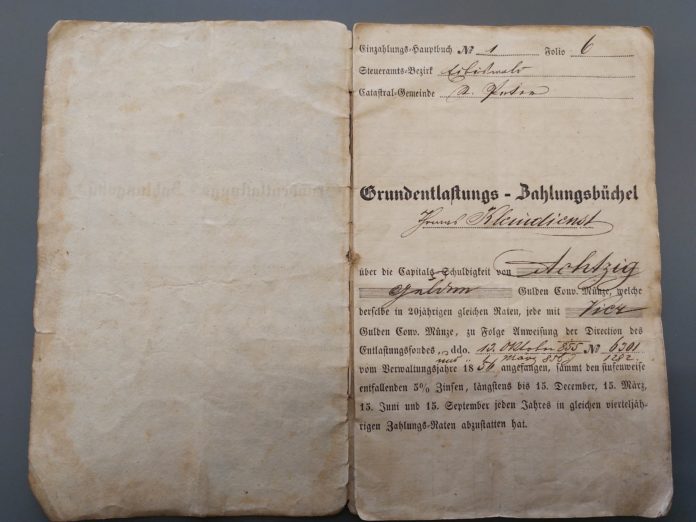 Einzahlungs-Hauptbuch № 1 Folio 6
Steueramts-Bezirk Eibiswald
Catastral-Gemeinde St. Peter
Grundentlastungs-Zahlungsbüchel
Kleindienst
über die Capitals Schuldigkeit von Achtzig
Gulden Gulden Conv. Münze, welche
derselbe in 20jährigen gleichen Raten, jede mit Vier
Gulden Conv. Münze, zu Folge Anweisung der Direction des
Entlastungsfondes, ddo. 13. Oktober 855 № 6301
März 856 1282
vom Verwaltungsjahre 1856 angefangen, sammt den stufenweise
entfallenden 5% Zinsen, längstens bis 15. December, 15. März,
15. Juni und 15. September jeden Jahres in gleichen vierteljäh-
rigen Zahlungs-Raten abzustatten hat.